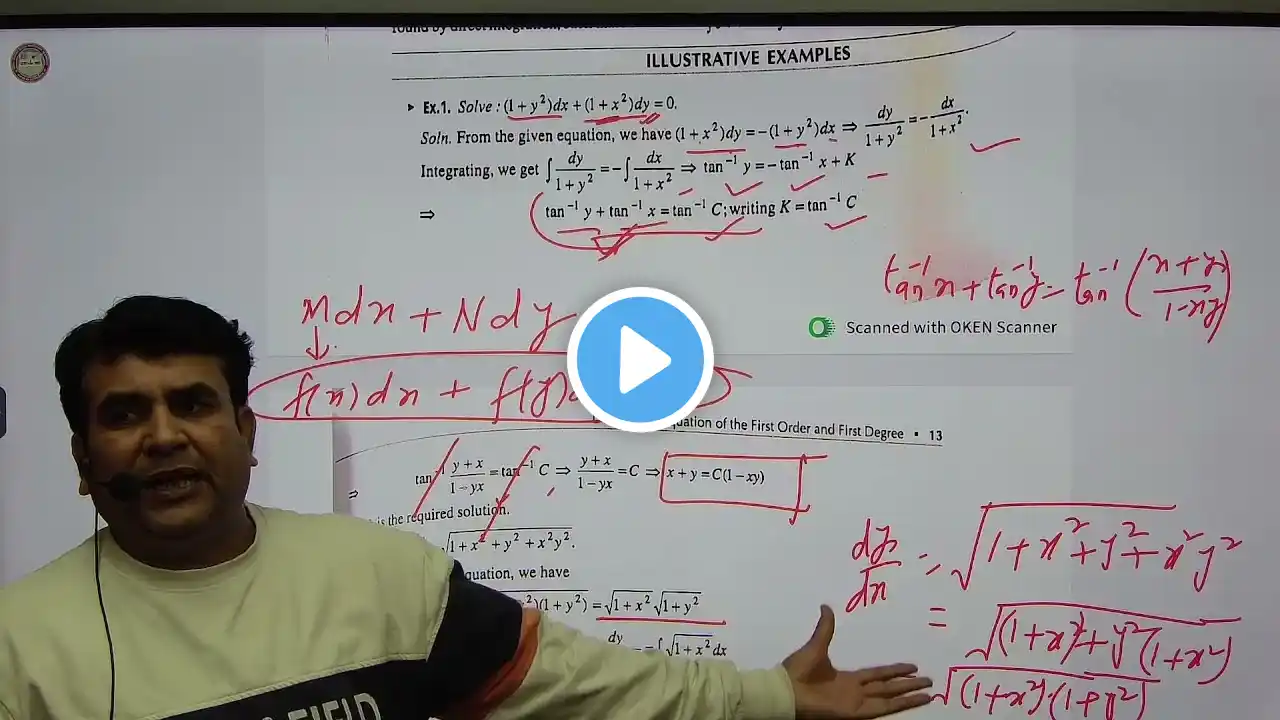 found by direct integration,
ILLUSTRATIVE EXAMPLES
▸ Ex.1. Solve : (1 + y²)dx + (1 + x²)dy = 0.
Soln. From the given equation, we have (1 + x²)dy = −(1 + y²)dx ⇒ dy/(1 + y²) = − dx/(1 + x²).
Integrating, we get ∫ dy/(1 + y²) = −∫ dx/(1 + x²) ⇒ tan⁻¹ y = −tan⁻¹ x + K
⇒ tan⁻¹ y + tan⁻¹ x = tan⁻¹ C; writing K = tan⁻¹ C
tan⁻¹ x + tan⁻¹ y = tan⁻¹ ((x + y)/(1 − xy))
Mdx + Ndy
Scanned with OKEN Scanner
f(x)dx + f(y)
quation of the First Order and First Degree • 13
⇒ tan⁻¹ (y + x)/(1 − yx) = tan⁻¹ C ⇒ (y + x)/(1 − yx) = C ⇒ x + y = C(1 − xy)
is the required solution.
√(1 + x² + y² + x²y²).
dy/dx = √(1 + x² + y² + x²y²)
quation, we have
)(1 + y²) = √(1 + x²) √(1 + y²)
= √((1 + x²) + y²(1 + x²))
dy = ∫ √(1 + x²) dx
√((1 + x²)(1 + y²))
FIELD